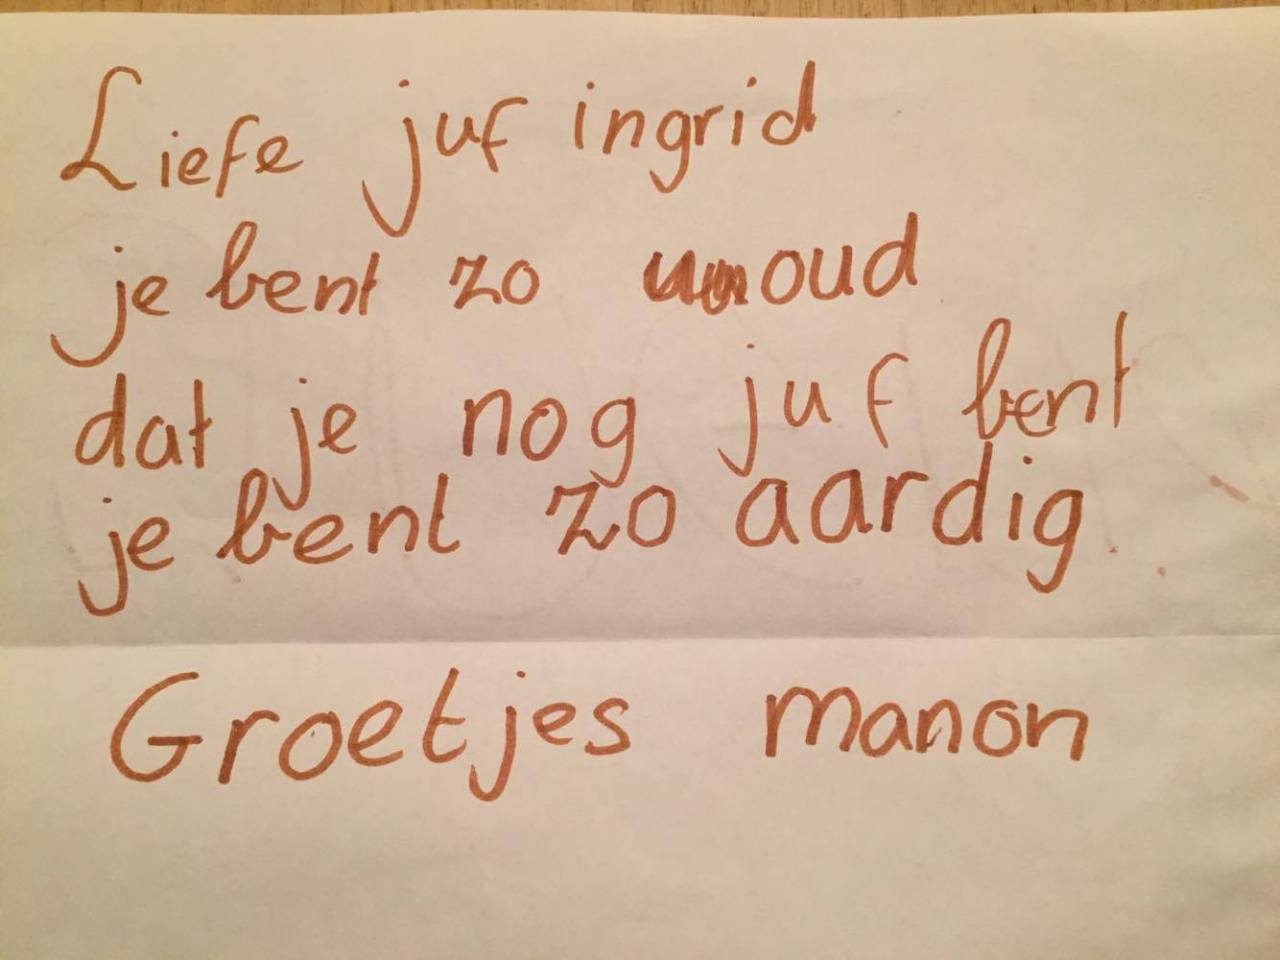 Liefe juf ingrid
je bent zo oud
dat je nog juf bent
je bent zo aardig.
Groetjes manon